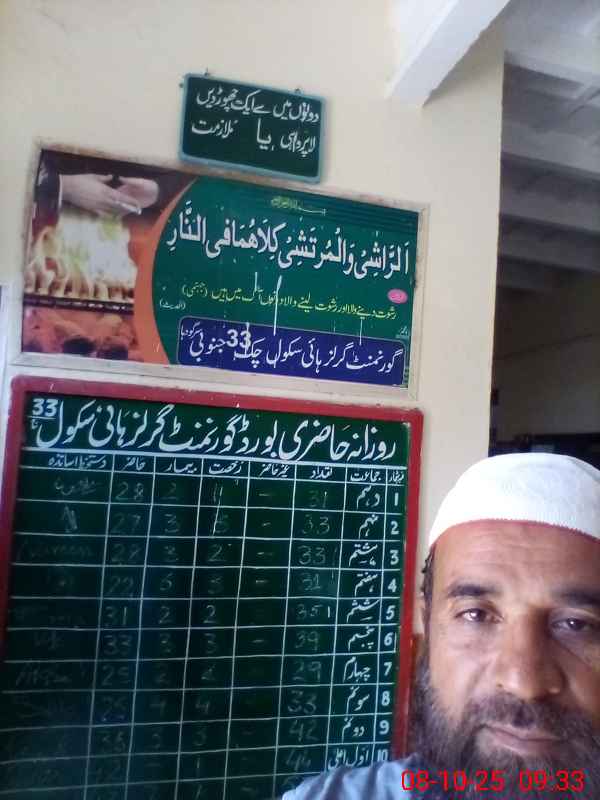 دونوں میں سے ایک چھوڑ دیں
لاپرواہی یا ملازمت
اَلرَّاشِیْ وَالْمُرْتَشِیْ کِلَاهُمَا فِی النَّارِ
رشوت دینے والا اور رشوت لینے والا دونوں میں ہیں (جہنمی) (الحدیث)
گورنمنٹ گرلز ہائی سکول چک 33 جنوبی سرگودہا
روزانہ حاضری بورڈ گورنمنٹ گرلز ہائی سکول 33
نمبر شمار جماعت تعداد غیر حاضر رخصت بیمار حاضر دستخط اساتذہ
1 دہم 31 - 2 28
2 نہم 33 - 3 27
3 ہشتم 33 - 2 3 28
4 ہفتم 31 - 3 22
5 ششم 35 - 2 2 31
6 پنجم 39 - 3 3 33
7 چہارم 29 - 2 25
8 سوئم 33 - 4 4 25
9 دوئم 42 - 3 35
10 اول اعلیٰ
08-10-25 09:33